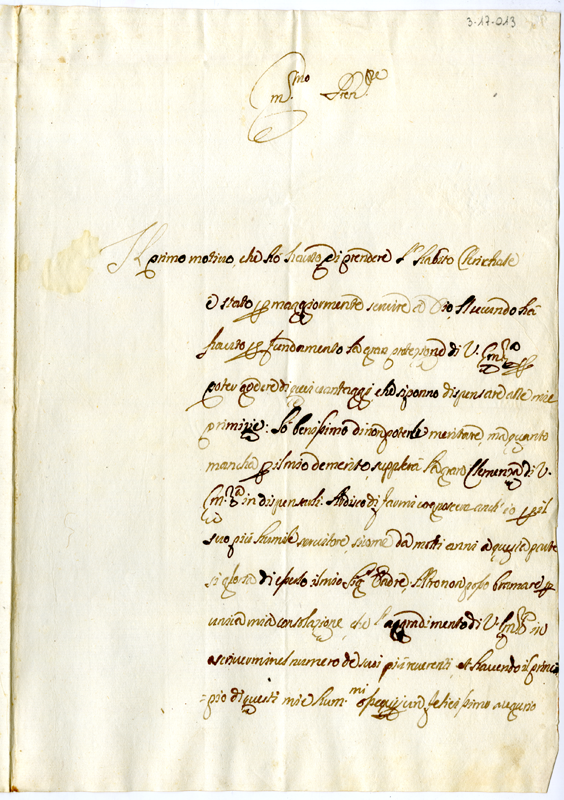 3-17-013
Em.mo Pren.pe
Il primo motivo, che hò havuto di prendere l'habito Clericale
è stato per maggiormente servire à Dio, Il secondo hà
havuto per fundamento la gran protezione di V. Em.za per
poter godere di quei vantaggi, che si ponno dispensare alle mie
primizie: Sò benissimo di non poterle meritare, ma quanto
mancha per il mio demerito, supplirà la gran Clemenza di V.
Em.za in dispensarli. Ardisco di farmi conoscere anch'io per il
suo più humile servitore, sicome da molti anni à questa parte
si gloria di esserlo il mio Sig.r Padre, Altro non posso bramare per
unica mia consolazione, che l'aggradimento di V. Em.za in
ascrivermi nel numero de suoi più riverenti, et havendo il princi
=pio di questi miei hum.mi ossequij un felicissimo augurio